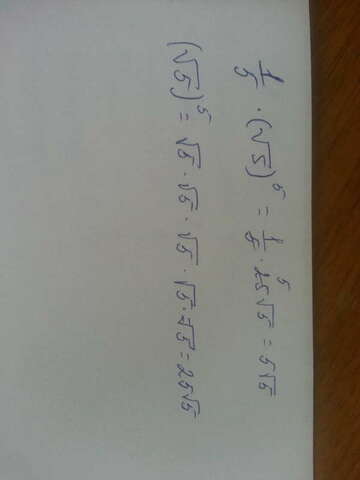 1/5 · (√5)⁵ = 1/5 · 25⁵ √5 = 5√5
(√5)⁵ = √5 · √5 · √5 · √5 · √5 = 25√5